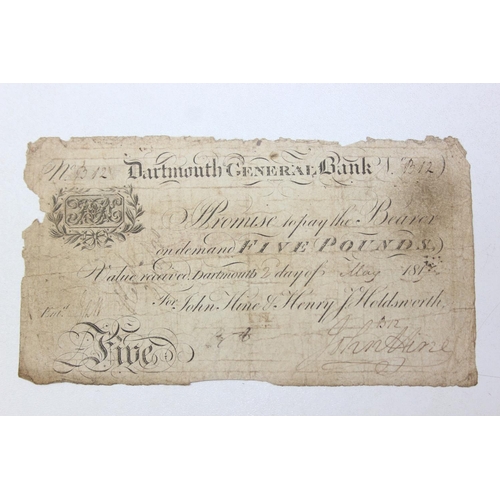 No. B 12 Dartmouth GENERAL Bank (B 12)
I Promise to pay the Bearer
on demand FIVE POUNDS.
Value received Dartmouth 2 day of May 181
For John Hine & Henry J. Holdsworth
Ent.d
Five
John Hine